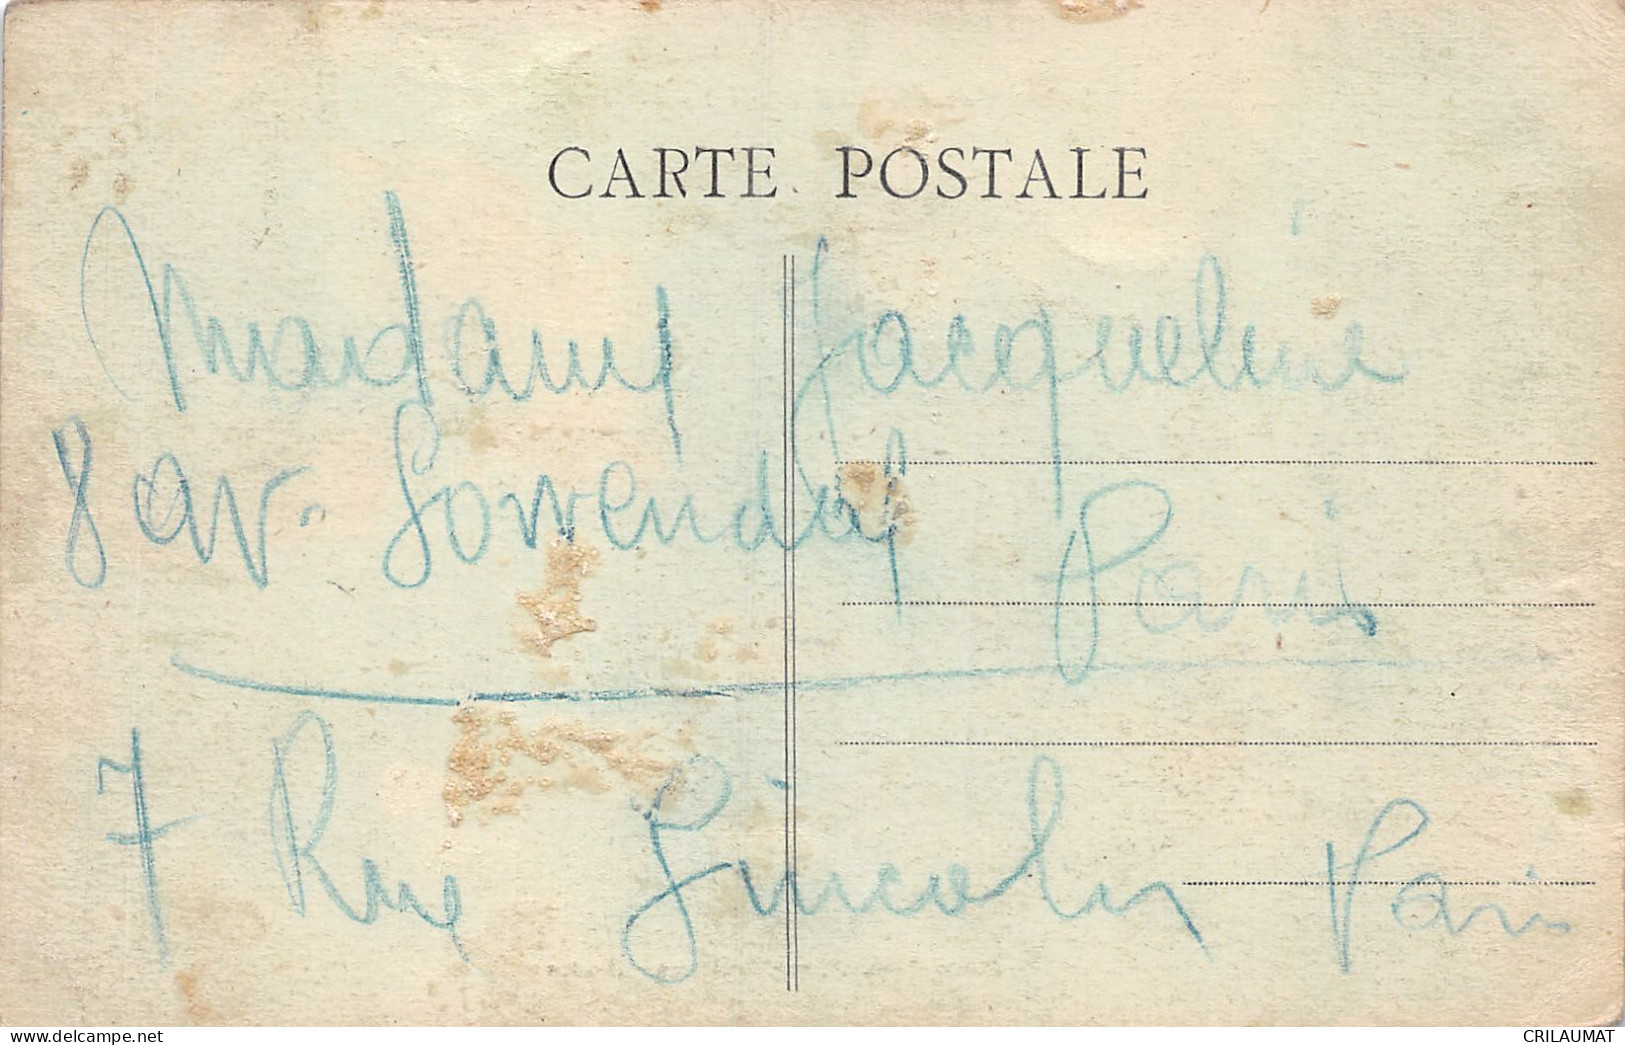 CARTE POSTALE
Madame Jacqueline
8 av. Lowendal
Paris
7 Rue Lincoln Paris
CRILAUMAT